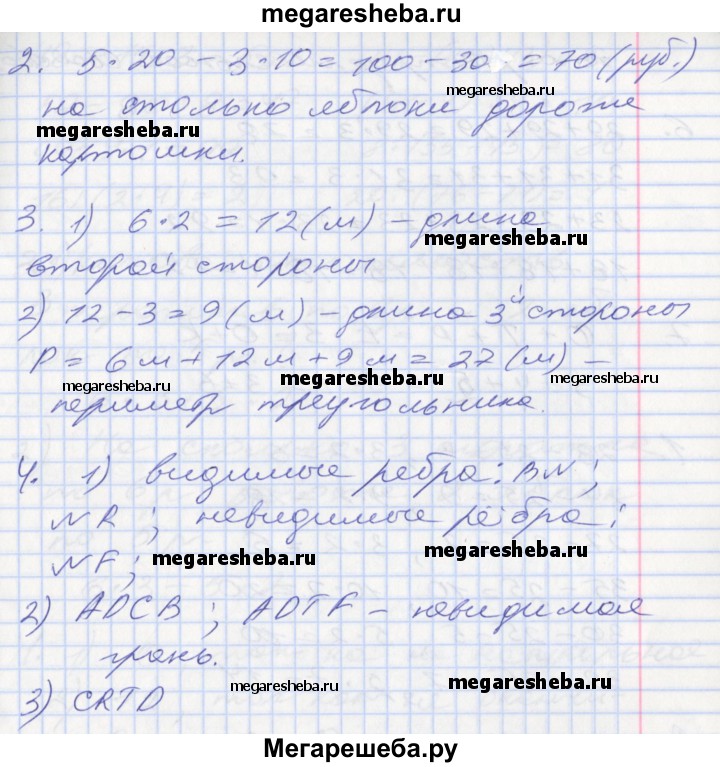 megaresheba.ru
2. 5·20 - 3·10 = 100 - 30 = 70 (руб.)
megaresheba.ru
на столько яблоки дороже
megaresheba.ru
картошки.
3. 1) 6·2 = 12 (м) - длина
megaresheba.ru
второй стороны
2) 12 - 3 = 9 (м) - длина 3й стороны
P = 6м + 12м + 9м = 27 (м) -
megaresheba.ru megaresheba.ru megaresheba.ru
периметр треугольника.
4. 1) видимые ребра: BN;
NR; невидимые ребра:
NF; megaresheba.ru megaresheba.ru
2) ADCB; ADTF - невидимая
грань.
3) CRTD megaresheba.ru megaresheba.ru
Мегарешеба.ру